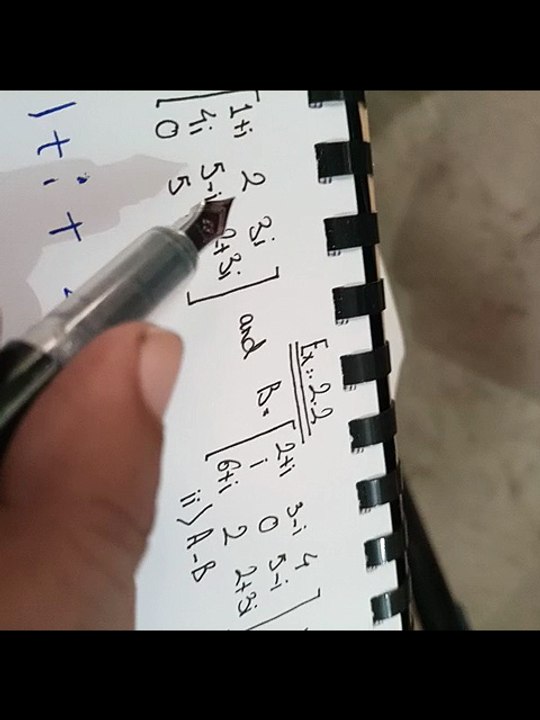 Ex:- 2.2
[ 1+i 2 3i
4i 5-i 2+3i
0 5 ] and B = [ 2+i 3-i 4
i 0 5-i
6+i 2 2+3i ]
ii) A-B
1 + i +